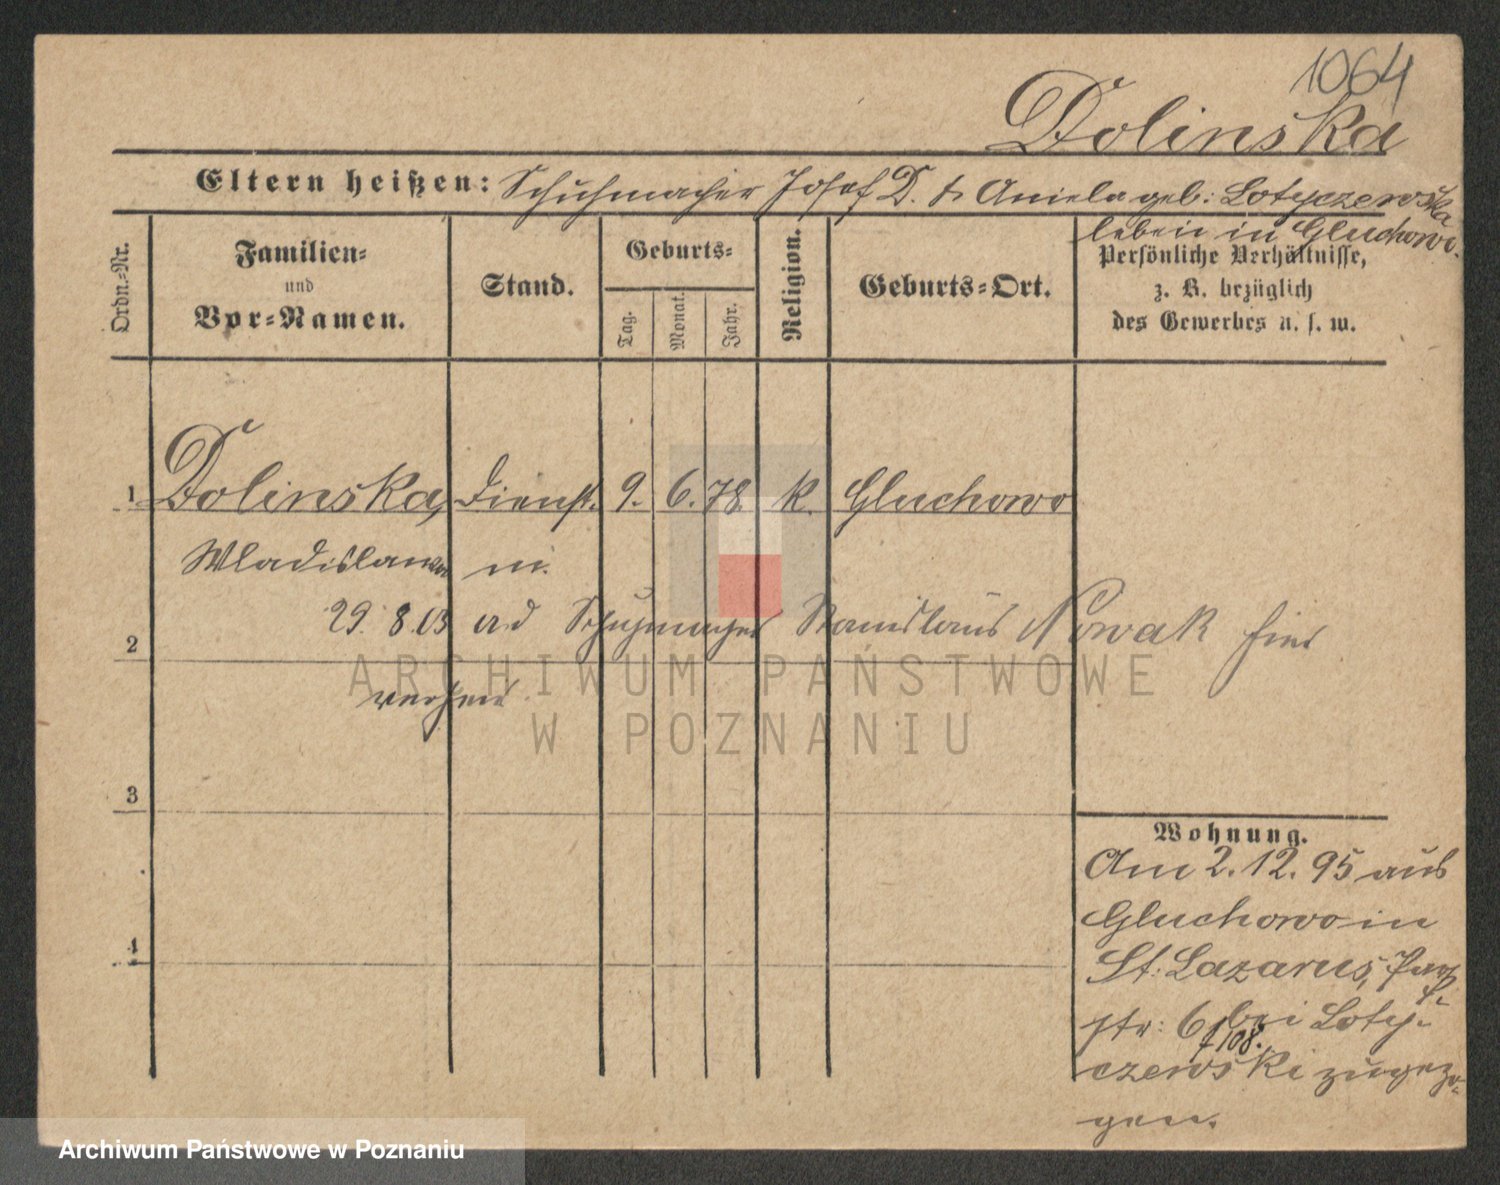 1064
Dolinska
Eltern heißen: Schuhmacher Josef D. & Aniela geb: Lotyczewska
leben in Gluchowo.
Ordn.-Nr.
Familien-
und
Vor-Namen.
Stand.
Geburts-
Tag.
Monat.
Jahr.
Religion.
Geburts-Ort.
Persönliche Verhältnisse,
z. B. bezüglich
des Gewerbes u. s. w.
1 Dolinska, Dienst. 9. 6. 78. k. Gluchowo
Wladislawa
29. 8. 03 Schuhmacher Stanislaus Nowak hier
2
ARCHIWUM PAŃSTWOWE
W POZNANIU
3
4
Wohnung.
Am 2. 12. 95 aus
Gluchowo in
St: Lazarus,
str: 6 bei Loty-
f 108.
czewski zugezo-
gen.
Archiwum Państwowe w Poznaniu